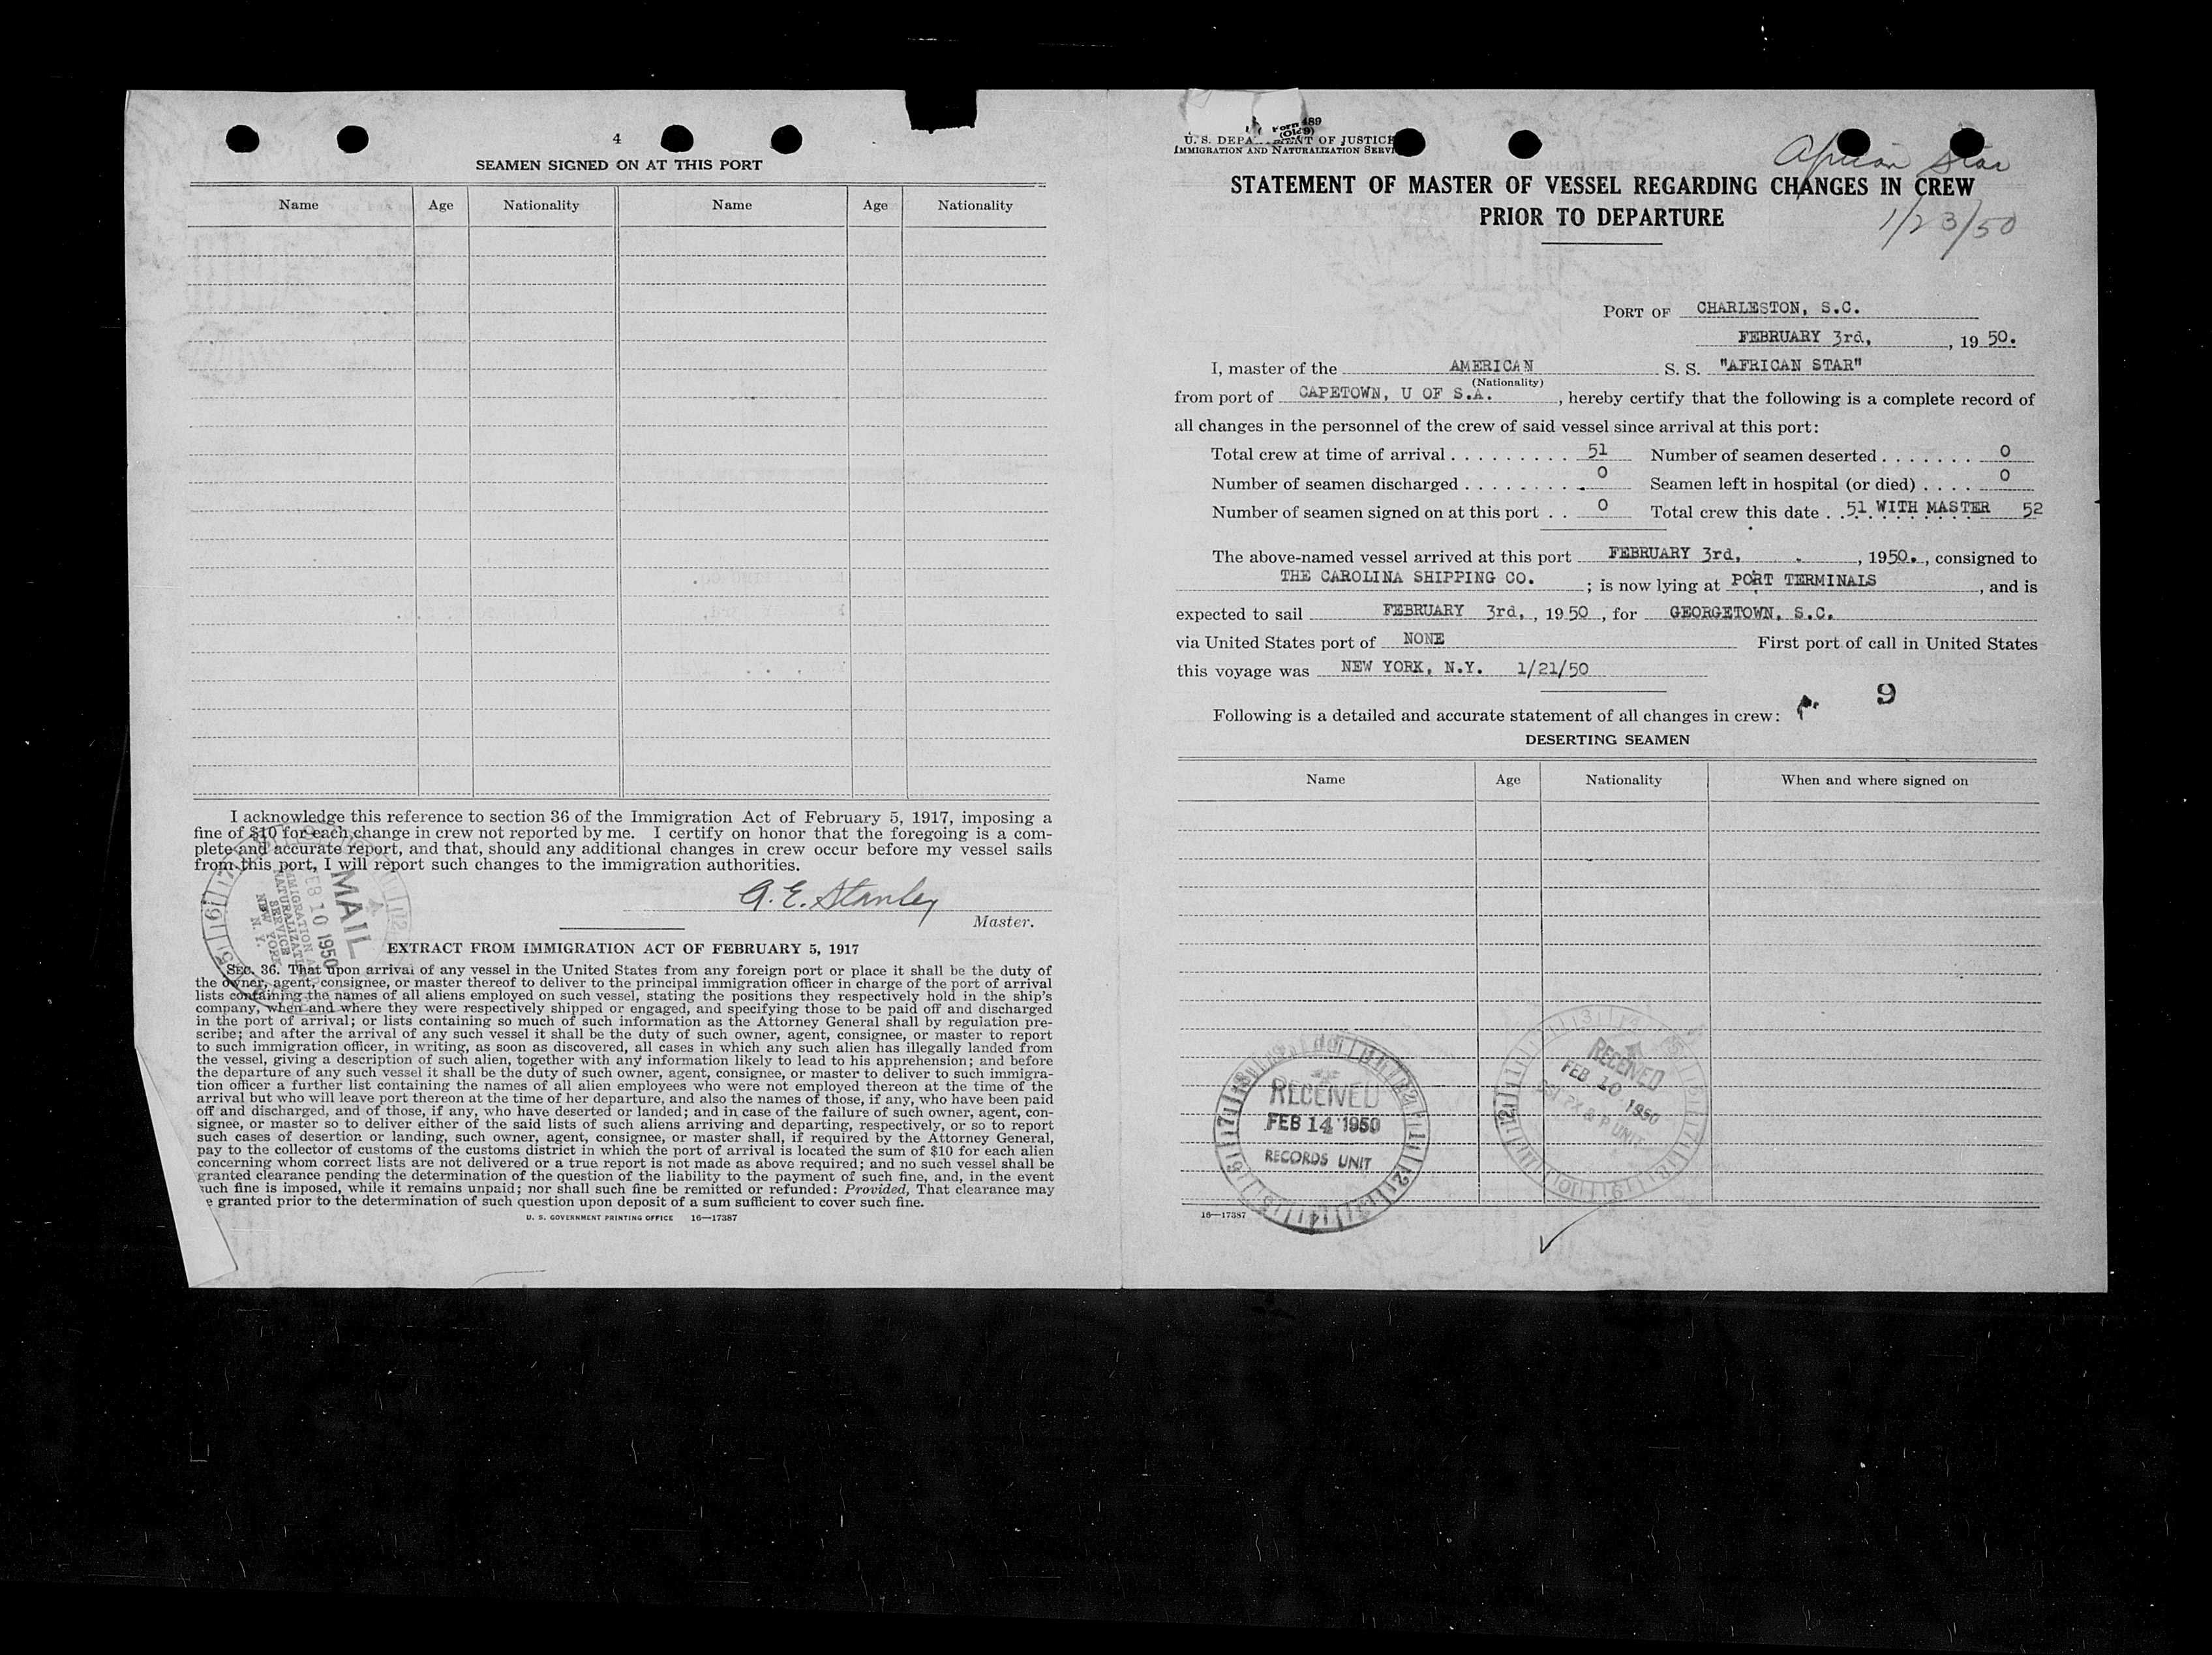 4
SEAMEN SIGNED ON AT THIS PORT
Name Age Nationality Name Age Nationality
I acknowledge this reference to section 36 of the Immigration Act of February 5, 1917, imposing a
fine of $10 for each change in crew not reported by me. I certify on honor that the foregoing is a com-
plete and accurate report, and that, should any additional changes in crew occur before my vessel sails
from this port, I will report such changes to the immigration authorities.
A. E. Stanley
Master.
MAIL
FEB 10 1950
IMMIGRATION
NATURALIZATI
SERVICE
NEW YORK
N. Y.
EXTRACT FROM IMMIGRATION ACT OF FEBRUARY 5, 1917
SEC. 36. That upon arrival of any vessel in the United States from any foreign port or place it shall be the duty of
the owner, agent, consignee, or master thereof to deliver to the principal immigration officer in charge of the port of arrival
lists containing the names of all aliens employed on such vessel, stating the positions they respectively hold in the ship's
company, when and where they were respectively shipped or engaged, and specifying those to be paid off and discharged
in the port of arrival; or lists containing so much of such information as the Attorney General shall by regulation pre-
scribe; and after the arrival of any such vessel it shall be the duty of such owner, agent, consignee, or master to report
to such immigration officer, in writing, as soon as discovered, all cases in which any such alien has illegally landed from
the vessel, giving a description of such alien, together with any information likely to lead to his apprehension; and before
the departure of any such vessel it shall be the duty of such owner, agent, consignee, or master to deliver to such immigra-
tion officer a further list containing the names of all alien employees who were not employed thereon at the time of the
arrival but who will leave port thereon at the time of her departure, and also the names of those, if any, who have been paid
off and discharged, and of those, if any, who have deserted or landed; and in case of the failure of such owner, agent, con-
signee, or master so to deliver either of the said lists of such aliens arriving and departing, respectively, or so to report
such cases of desertion or landing, such owner, agent, consignee, or master shall, if required by the Attorney General,
pay to the collector of customs of the customs district in which the port of arrival is located the sum of $10 for each alien
concerning whom correct lists are not delivered or a true report is not made as above required; and no such vessel shall be
granted clearance pending the determination of the question of the liability to the payment of such fine, and, in the event
such fine is imposed, while it remains unpaid; nor shall such fine be remitted or refunded: Provided, That clearance may
e granted prior to the determination of such question upon deposit of a sum sufficient to cover such fine.
U. S. GOVERNMENT PRINTING OFFICE 16—17387
Form 489
(Old 9)
U. S. DEPA NT OF JUSTICE
IMMIGRATION AND NATURALIZATION SERVI
African Star
STATEMENT OF MASTER OF VESSEL REGARDING CHANGES IN CREW
PRIOR TO DEPARTURE
1/23/50
PORT OF CHARLESTON, S.C.
FEBRUARY 3rd, , 19 50.
I, master of the AMERICAN S. S. "AFRICAN STAR"
(Nationality)
from port of CAPETOWN, U OF S.A. , hereby certify that the following is a complete record of
all changes in the personnel of the crew of said vessel since arrival at this port:
Total crew at time of arrival . . . . . . . . . 51 Number of seamen deserted . . . . . . . 0
Number of seamen discharged . . . . . . . . . 0 Seamen left in hospital (or died) . . . . 0
Number of seamen signed on at this port . . 0 Total crew this date . . 51 WITH MASTER 52
The above-named vessel arrived at this port FEBRUARY 3rd, , 1950. , consigned to
THE CAROLINA SHIPPING CO. ; is now lying at PORT TERMINALS , and is
expected to sail FEBRUARY 3rd, , 19 50 , for GEORGETOWN, S.C.
via United States port of NONE First port of call in United States
this voyage was NEW YORK, N.Y. 1/21/50
9
Following is a detailed and accurate statement of all changes in crew:
DESERTING SEAMEN
Name Age Nationality When and where signed on
RECEIVED
FEB 14 1950
RECORDS UNIT
RECEIVED
FEB 10 1950
& P UNIT
16—17387